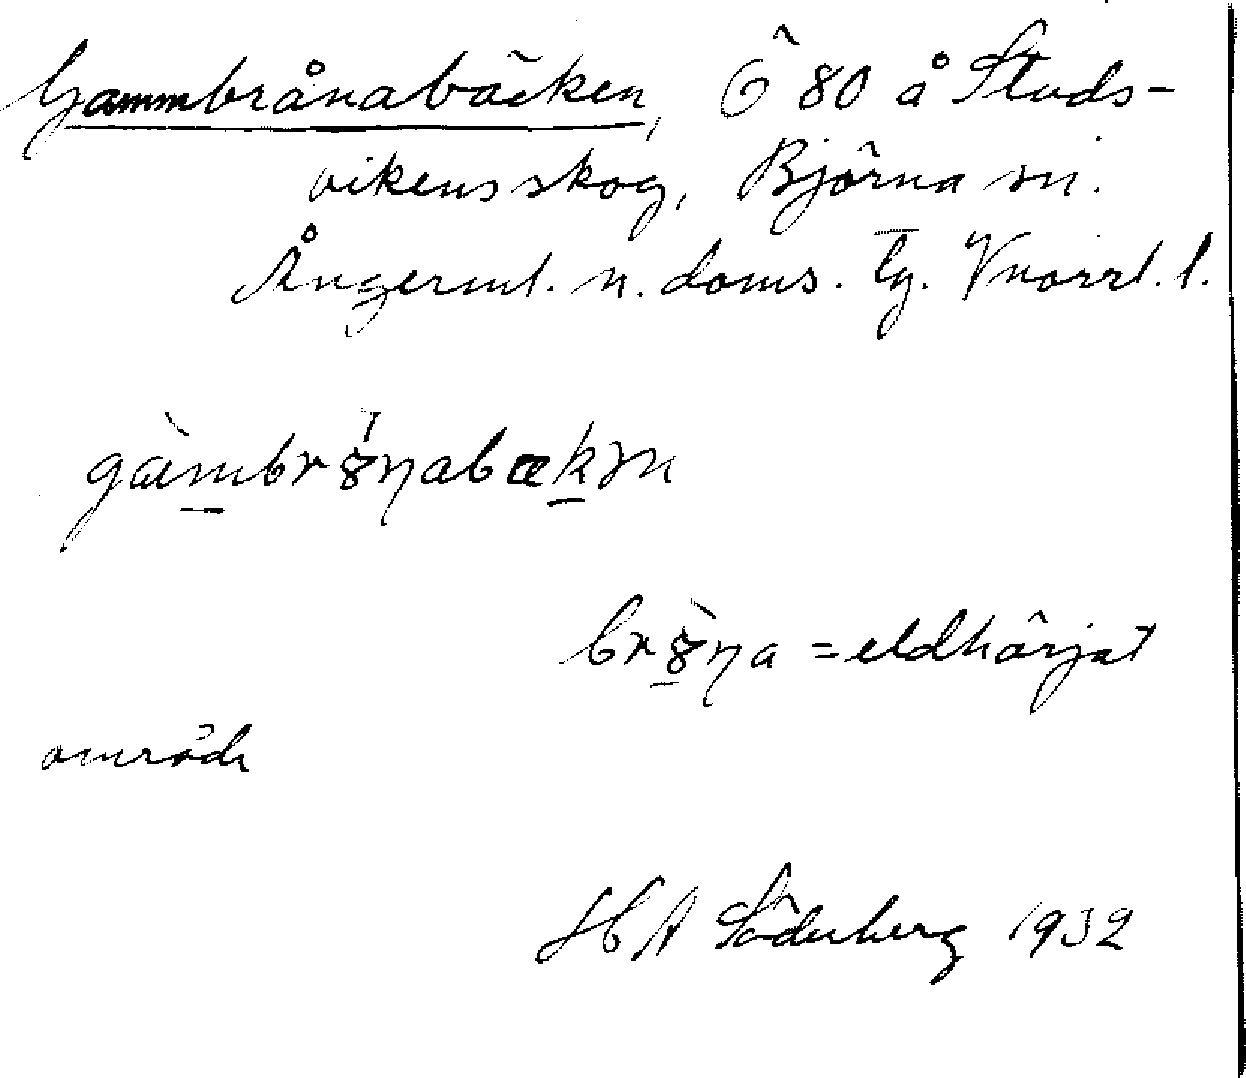 Gammbrånabäcken, Ö 80 å Studs-
vikens skog, Björna sn.
Ångerml. n. doms. tg. Vnorrl. l.
brȣ̀ηa = eldhärjat
område
H A Söderberg 1932